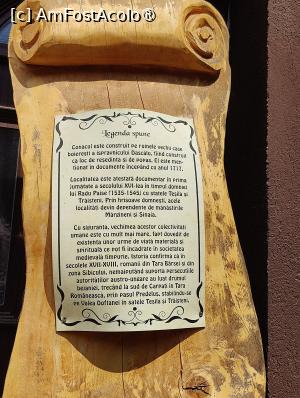 (c) AmFostAcolo®
Legenda spune
Conacul este construit pe ruinele vechii case
boierești a ispravnicului Dascălu, fiind construit
ca loc de reședință și de popas. El este men-
ționat în documente începând cu anul 1717.
Localitatea este atestată documentar în prima
jumătate a secolului XVI-lea în timpul domniei
lui Radu Paisie (1535-1545) cu statele Teșila și
Trăisteni. Prin hrisoave domnești, acele
localități devin dependente de mănăstirile
Mărgineni și Sinaia.
Cu siguranță, vechimea acestor colectivități
umane este cu mult mai mare, fapt dovedit de
existența unor urme de viață materială și
spirituală ce pot fi încadrate în societatea
medievală timpurie. Istoria confirmă că în
secolele XVII-XVIII, românii din Țara Bârsei și din
zona Sibiului, nemaiputând suporta persecuțiile
autorităților austro-ungare au luat drumul
bejaniei, trecând la sud de Carpați în Țara
Românească, prin pasul Predeluș, stabilindu-se
pe Valea Doftanei în satele Teșila și Trăisteni.